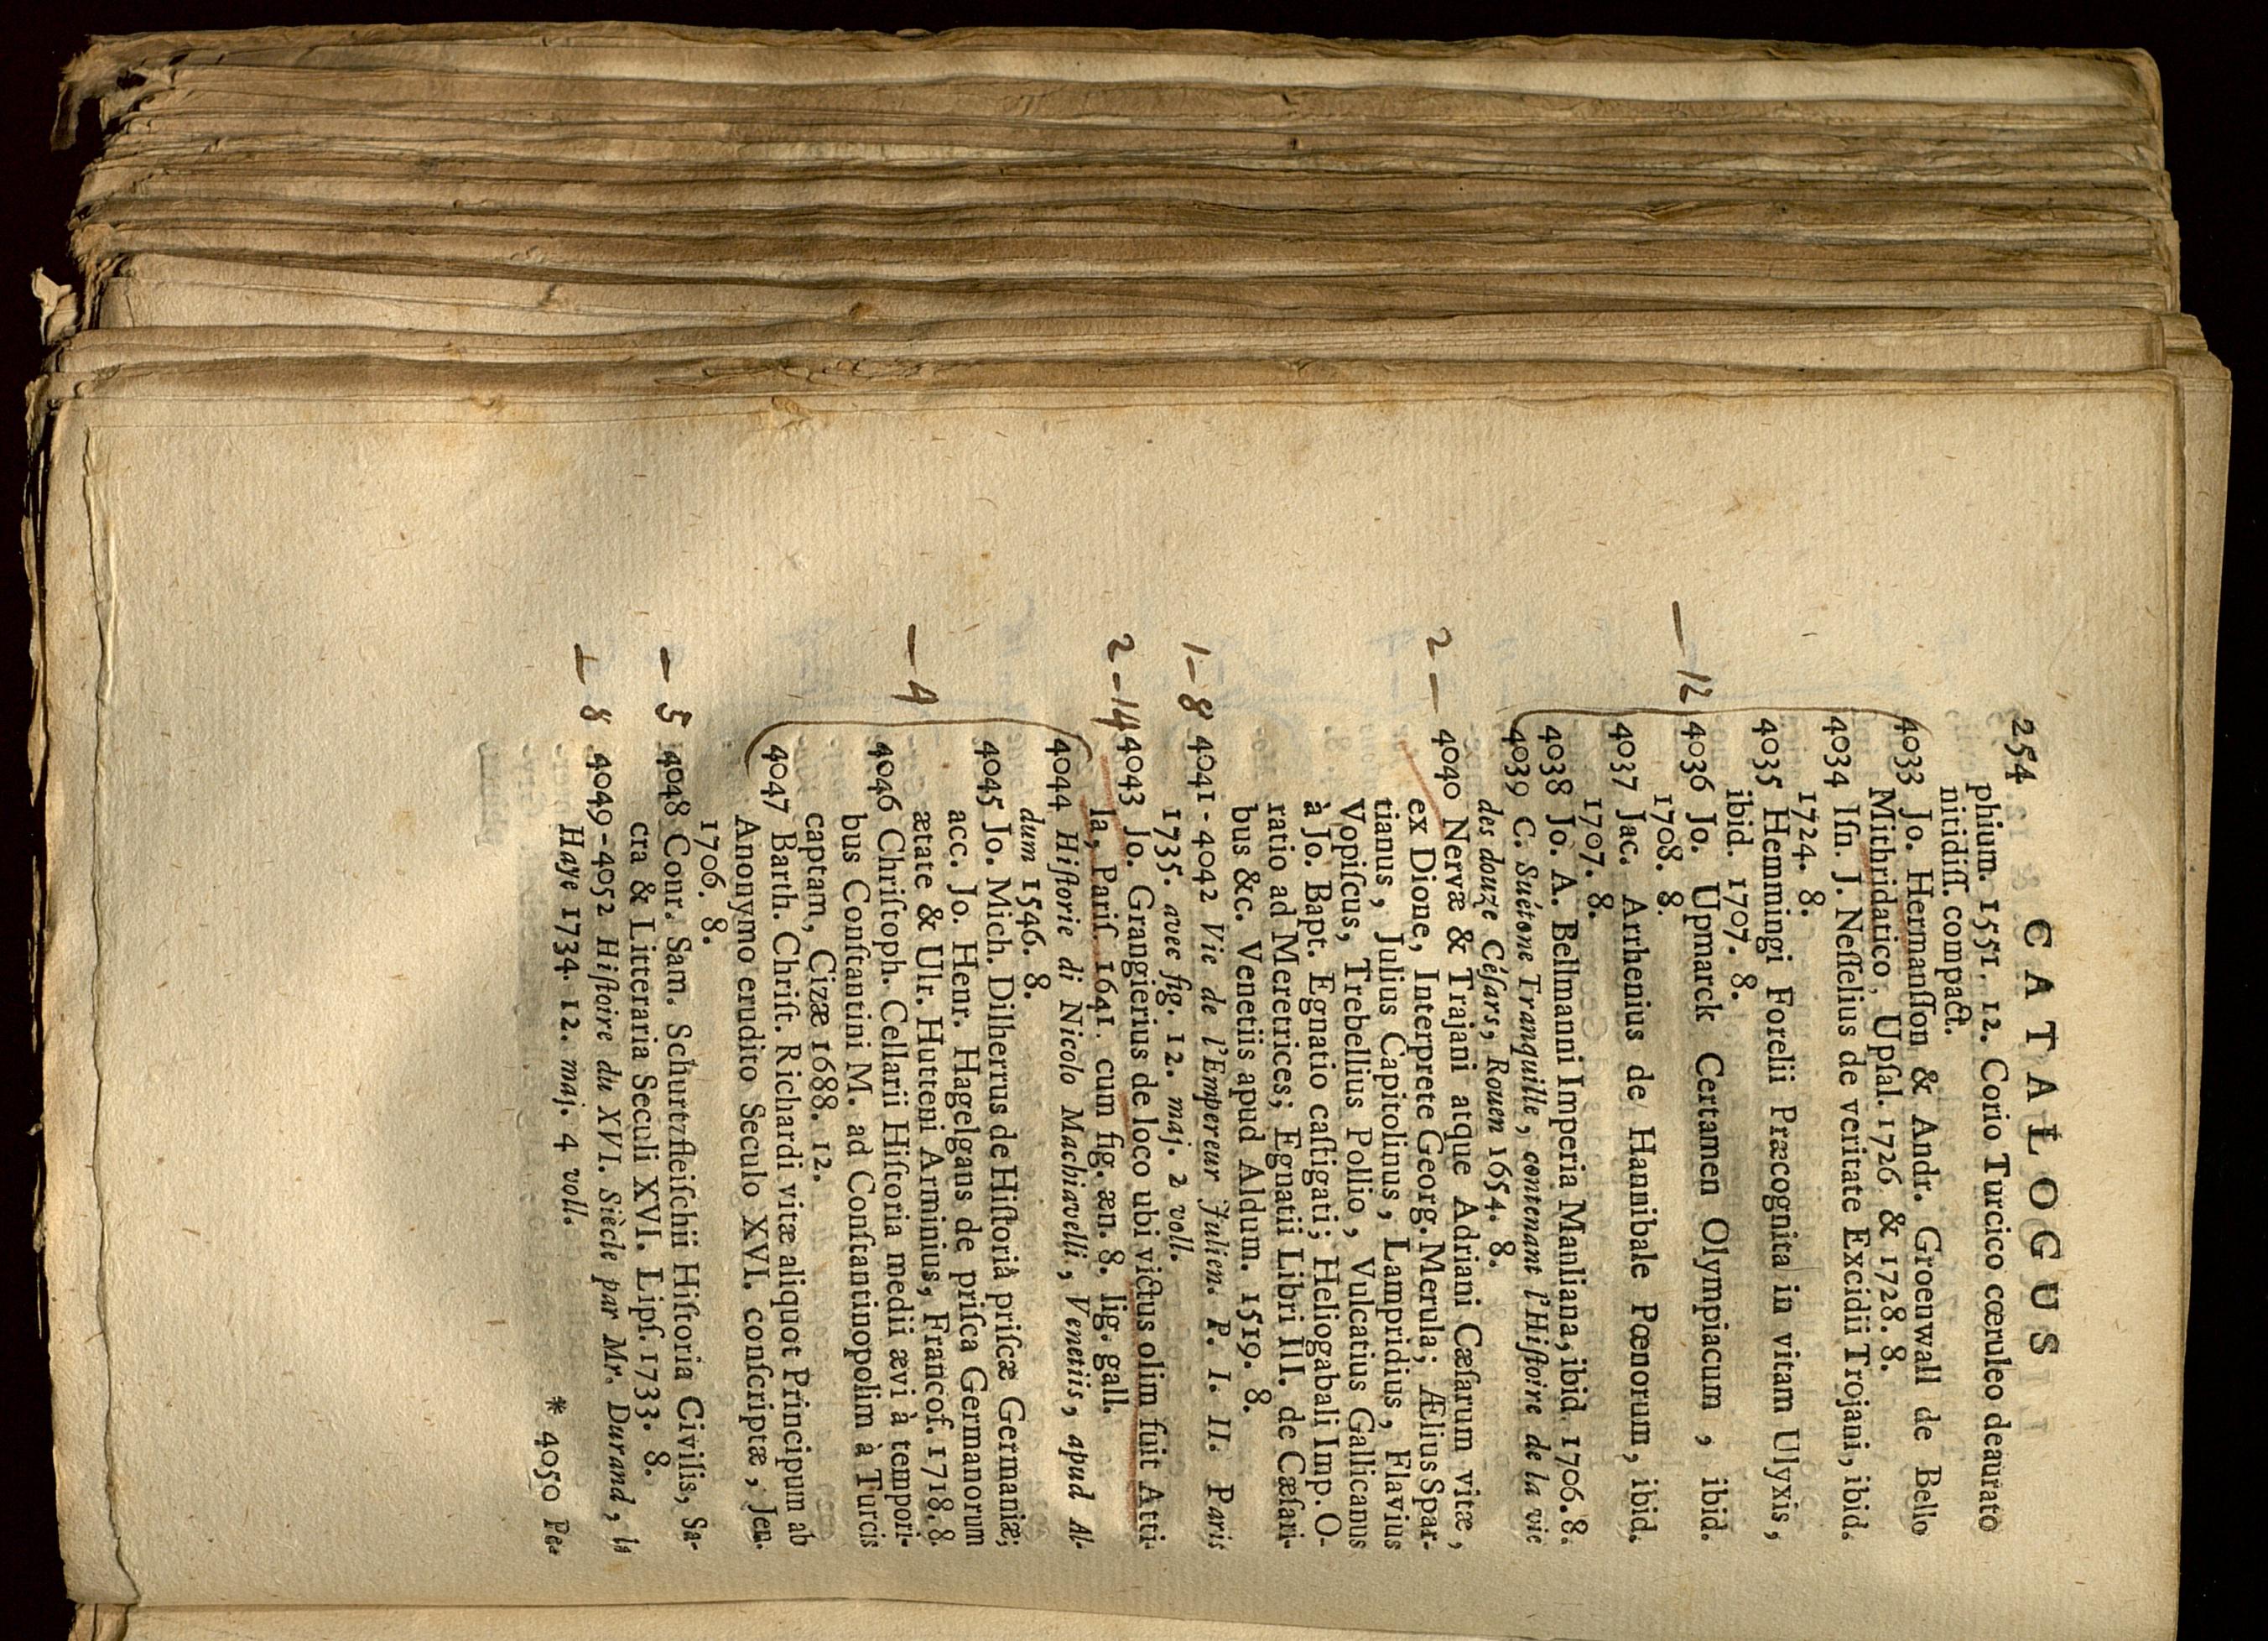 254 CATALOGUS
phium. 1551. 12. Corio Turcico cœruleo deaurato
nitidiſſ. compact.
4033 Jo. Hermanſſon & Andr. Groenwall de Bello
Mithridatico, Upſal. 1726 & 1728. 8.
4034 Iſn. J. Neſſelius de veritate Excidii Trojani, ibid.
1724. 8.
4035 Hemmingi Forelii Præcognita in vitam Ulyxis,
ibid. 1707. 8.
— 12 4036 Jo. Upmarck Certamen Olympiacum, ibid.
1708. 8.
4037 Jac. Arrhenius de Hannibale Pœnorum, ibid.
1707. 8.
4038 Jo. A. Bellmanni Imperia Manliana, ibid. 1706. 8.
4039 C. Suétone Tranquille, contenant l'Hiſtoire de la vie
des douze Céſars, Rouen 1654. 8.
2 — 4040 Nervæ & Trajani atque Adriani Cæſarum vitæ,
ex Dione, Interprete Georg. Merula; Ælius Spar-
tianus, Julius Capitolinus, Lampridius, Flavius
Vopiſcus, Trebellius Pollio, Vulcatius Gallicanus
à Jo. Bapt. Egnatio caſtigati; Heliogabali Imp. O-
ratio ad Meretrices; Egnatii Libri III. de Cæſari-
bus &c. Venetiis apud Aldum. 1519. 8.
1 — 8 4041-4042 Vie de l'Empereur Julien. P. I. II. Paris
1735. avec fig. 12. maj. 2 voll.
2 — 14 4043 Jo. Grangierius de loco ubi victus olim fuit Atti-
la, Pariſ. 1641. cum fig. æn. 8. lig. gall.
4044 Hiſtorie di Nicolo Machiavelli, Venetiis, apud Al-
dum 1546. 8.
4045 Jo. Mich. Dilherrus de Hiſtoriâ priſcæ Germaniæ;
acc. Jo. Henr. Hagelgans de priſca Germanorum
— 4 ætate & Ulr. Hutteni Arminius, Francof. 1718. 8.
4046 Chriſtoph. Cellarii Hiſtoria medii ævi à tempori-
bus Conſtantini M. ad Conſtantinopolim à Turcis
captam, Cizæ 1688. 12.
4047 Barth. Chriſt. Richardi vitæ aliquot Principum ab
Anonymo erudito Seculo XVI. conſcriptæ, Jen.
1706. 8.
— 5 4048 Conr. Sam. Schurtzfleiſchii Hiſtoria Civilis, Sa-
cra & Litteraria Seculi XVI. Lipſ. 1733. 8.
1 — 8 4049-4052 Hiſtoire du XVI. Siècle par Mr. Durand, la
Haye 1734. 12. maj. 4 voll.
* 4050 Pe-